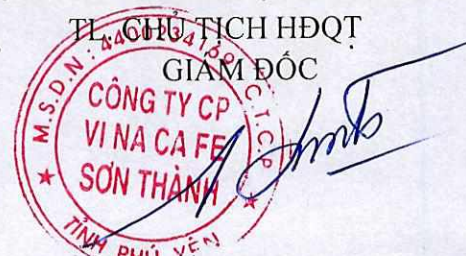 TL. CHỦ TỊCH HĐQT
GIÁM ĐỐC
M.S.D.N: 4400234169 C.T.C.P
CÔNG TY CP
VI NA CA FE
SƠN THÀNH
TỈNH PHÚ YÊN